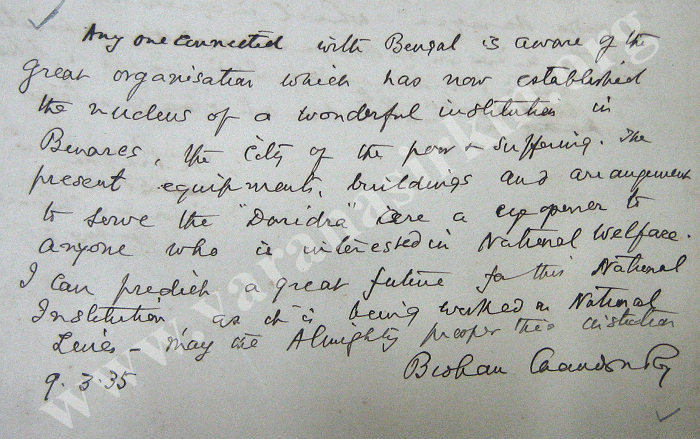 Any one connected with Bengal is aware of the
great organisation which has now established
the nucleus of a wonderful institution in
Benares, the City of the poor & suffering. The
present equipments, buildings and arrangement
to serve the "Daridra" are a eye opener to
anyone who is interested in National Welfare.
I can predict a great future for this National
Institution as it is being worked on National
Lines - may the Almighty prosper this institution
Bidhan Chandra Roy
9.3.35
www.varanasirkm.org